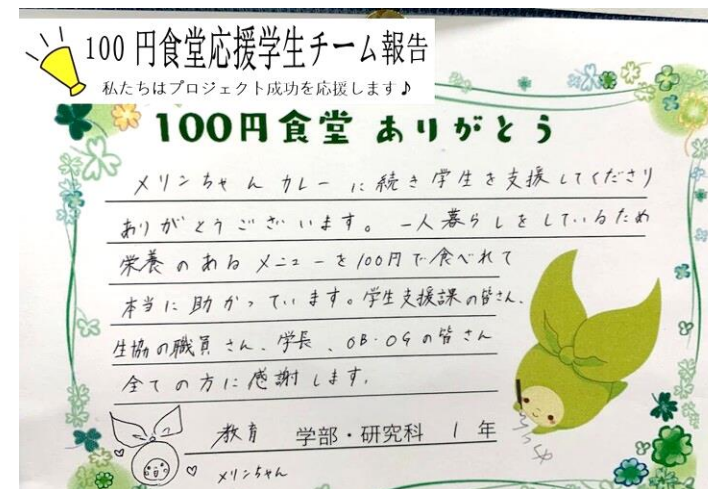 100 円食堂応援学生チーム報告
私たちはプロジェクト成功を応援します♪
100円食堂 ありがとう
メリンちゃんカレーに続き学生を支援してくださり
ありがとうございます。一人暮らしをしているため
栄養のあるメニューを100円で食べれて
本当に助かっています。学生支援課の皆さん、
生協の職員さん、学長、OB・OGの皆さん
全ての方に感謝します。
教育 学部・研究科 1 年
メリンちゃん